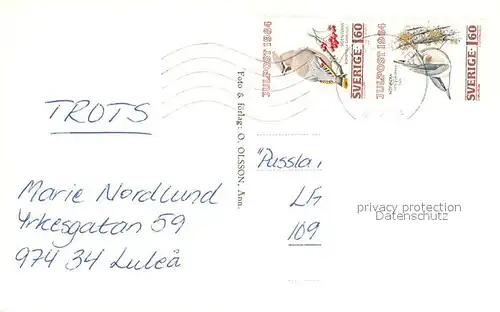 TROTS
Marie Nordlund
Yrkesgatan 59
974 34 Luleå
Foto & förlag: O. OLSSON, Ann.
JULPOST 1984
SVERIGE 160
JULPOST 1984
SVERIGE 160
"Pussla
109
privacy protection
Datenschutz